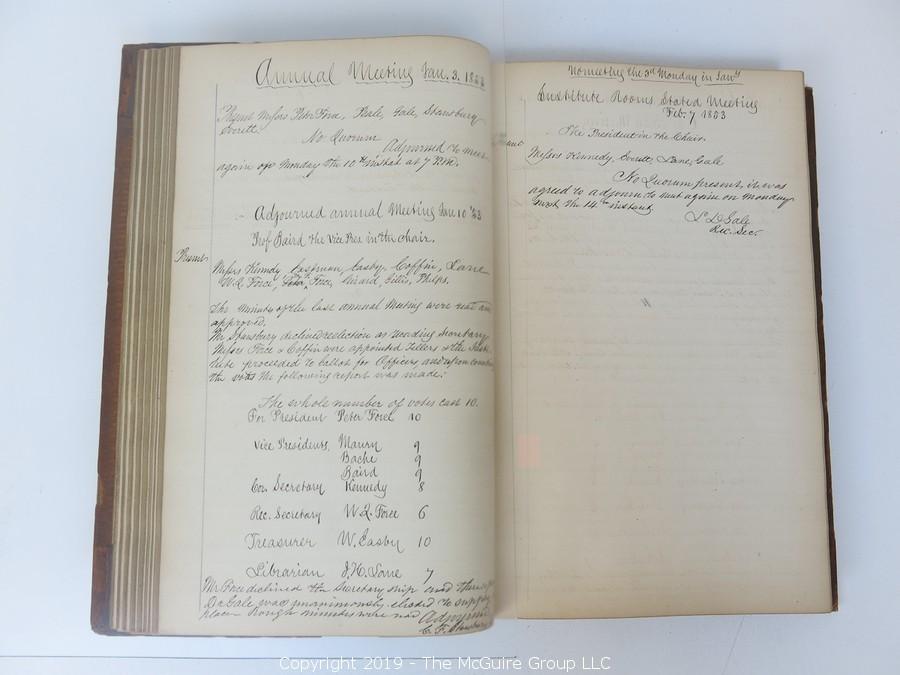 Annual Meeting Jan. 3. 1853
Present Messrs Peter Force, Peale, Gale, Stansbury
Everett
No Quorum
Adjourned to meet
again on Monday the 10th instat at 7 P.M.
Adjourned annual Meeting Jan 10 '53
Prof Baird the Vice Pres in the Chair.
Present
Messrs Kennedy, Eastman, Easby, Coffin, Lane
W.Q. Force, Peter Force, Girard, Gillis, Phelps.
The minutes of the last annual Meeting were read and
approved.
Mr Stansbury declined reelection as recording Secretary
Messrs Force & Coffin were appointed Tellers & the Insti-
tute proceeded to ballot for Officers, and upon counting
the votes the following report was made:
The whole number of votes cast 10.
For President Peter Force 10
Vice Presidents, Maury 9
Bache 9
Baird 9
Cor. Secretary Kennedy 8
Rec. Secretary W.Q. Force 6
Treasurer W. Easby 10
Librarian J.H. Lane 7
Mr Force declined the Secretary ship and
Dr Gale was unanimously elected to
place Rough minutes were read Adjourned
C. F. Stansbury
No meeting the 3d Monday in Jany
Institute Rooms, Stated Meeting
Feb. 7 1853
The President in the Chair.
Present
Messrs Kennedy, Everett, Lane, Gale
No Quorum present, it was
agreed to adjourn to meet again on Monday
next the 14th instant
L D Gale
Rec. Sec.
Copyright 2019 - The McGuire Group LLC